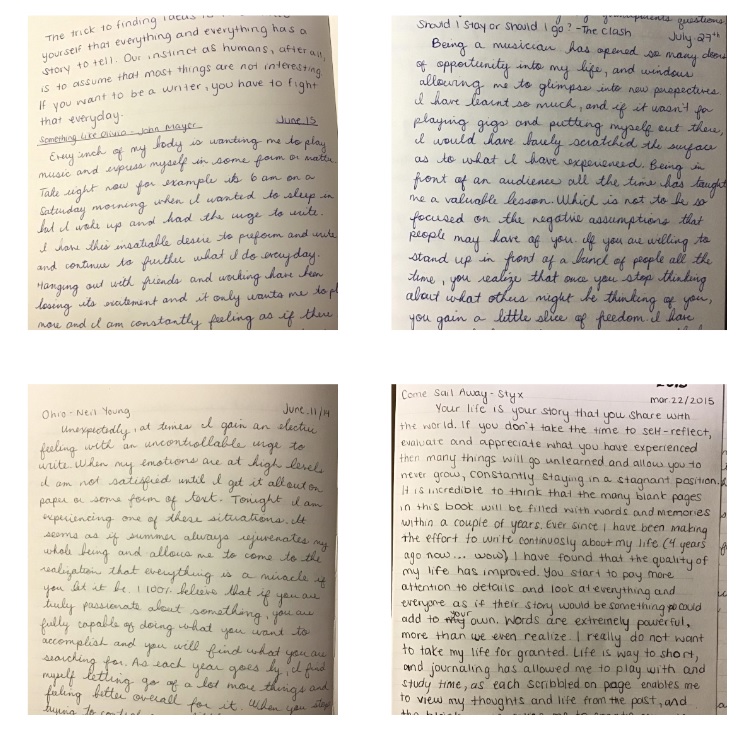 The trick to finding ideas is to
yourself that everything and everything has a
story to tell. Our instinct as humans, after all,
is to assume that most things are not interesting
If you want to be a writer, you have to fight
that everyday.
Something Like Olivia - John Mayer June 15
Every inch of my body is wanting me to play
music and express myself in some form or matter
Take right now for example its 6 am on a
Saturday morning when I wanted to sleep in
but I woke up and had the urge to write.
I have this insatiable desire to preform and write
and continue to further what I do everyday.
Hanging out with friends and working have been
losing its excitement and it only wants me to pl
more and I am constantly feeling as if there
grandparents questions
Should I Stay or Should I go? - The Clash July 27th
Being a musician has opened so many doors
of opportunity into my life, and windows
allowing me to glimpse into new perspectives.
I have learnt so much, and if it wasn't for
playing gigs and putting myself out there,
I would have barely scratched the surface
as to what I have experienced. Being in
front of an audience all the time has taught
me a valuable lesson. Which is not to be so
focused on the negative assumptions that
people may have of you. If you are willing to
stand up in front of a bunch of people all the
time, you realize that once you stop thinking
about what others might be thinking of you,
you gain a little slice of freedom. I have
Ohio - Neil Young June. 11/14
Unexpectedly, at times I gain an electric
feeling with an uncontrollable urge to
write. When my emotions are at high levels
I am not satisfied until I get it all out on
paper or some form of text. Tonight I am
experiencing one of these situations. It
seems as if summer always rejuvenates my
whole being and allows me to come to the
realization that everything is a miracle if
you let it be. I 100% believe that if you are
truly passionate about something, you are
fully capable of doing what you want to
accomplish and you will find what you are
searching for. As each year goes by, I find
myself letting go of a lot more things and
feeling better overall for it. When you stop
trying to control
2015
Come Sail Away - Styx mar. 22/2015
Your life is your story that you share with
the world. If you don't take the time to self-reflect,
evaluate and appreciate what you have experienced
then many things will go unlearned and allows you to
never grow, constantly staying in a stagnant position.
It is incredible to think that the many blank pages
in this book will be filled with words and memories
within a couple of years. Ever since I have been making
the effort to write continuously about my life (4 years
ago now... wow), I have found that the quality of
my life has improved. You start to pay more
attention to details and look at everything and
everyone as if their story would be something you could
add to your own. Words are extremely powerful,
more than we even realize. I really do not want
to take my life for granted. Life is way to short,
and journaling has allowed me to play with and
study time, as each scribbled on page enables me
to view my thoughts and life from the past, and